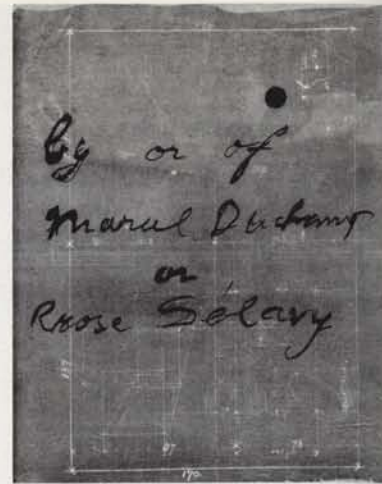 by or of
Marcel Duchamp
or
Rrose Sélavy
170